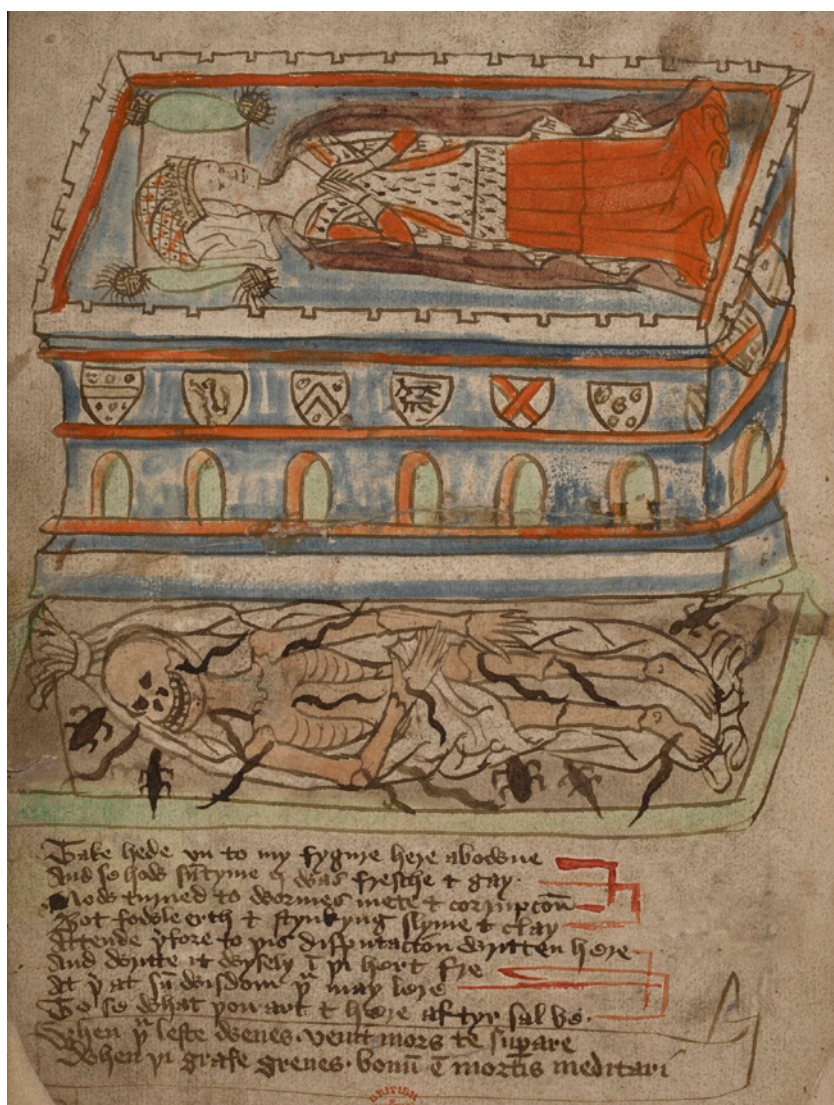 Take hede vn to my fygure here abowne
And se how sūtyme I was fresche & gay
Now turned to wormes mete & corrupcoñ
Bot fowle erth & stynkyng slyme & clay
Attende þfore to þis disputacion written here
And writte it wysely ī þi hert fre
At þ at sū wisdom þͧ may lere
To se what þou art & here aftyr sal be.
When þͧ leste wenes. venit mors te supare
When þi grafe grenes. bonū ē mortis meditari
BRITISH